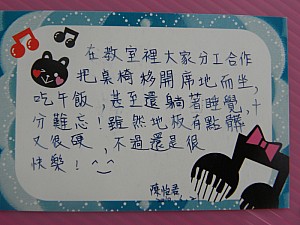 在教室裡大家分工合作
把桌椅移開席地而坐,
吃午飯,甚至還躺著睡覺,十
分難忘!雖然地板有點髒
又很硬,不過還是很
快樂!^_^
陳怡君